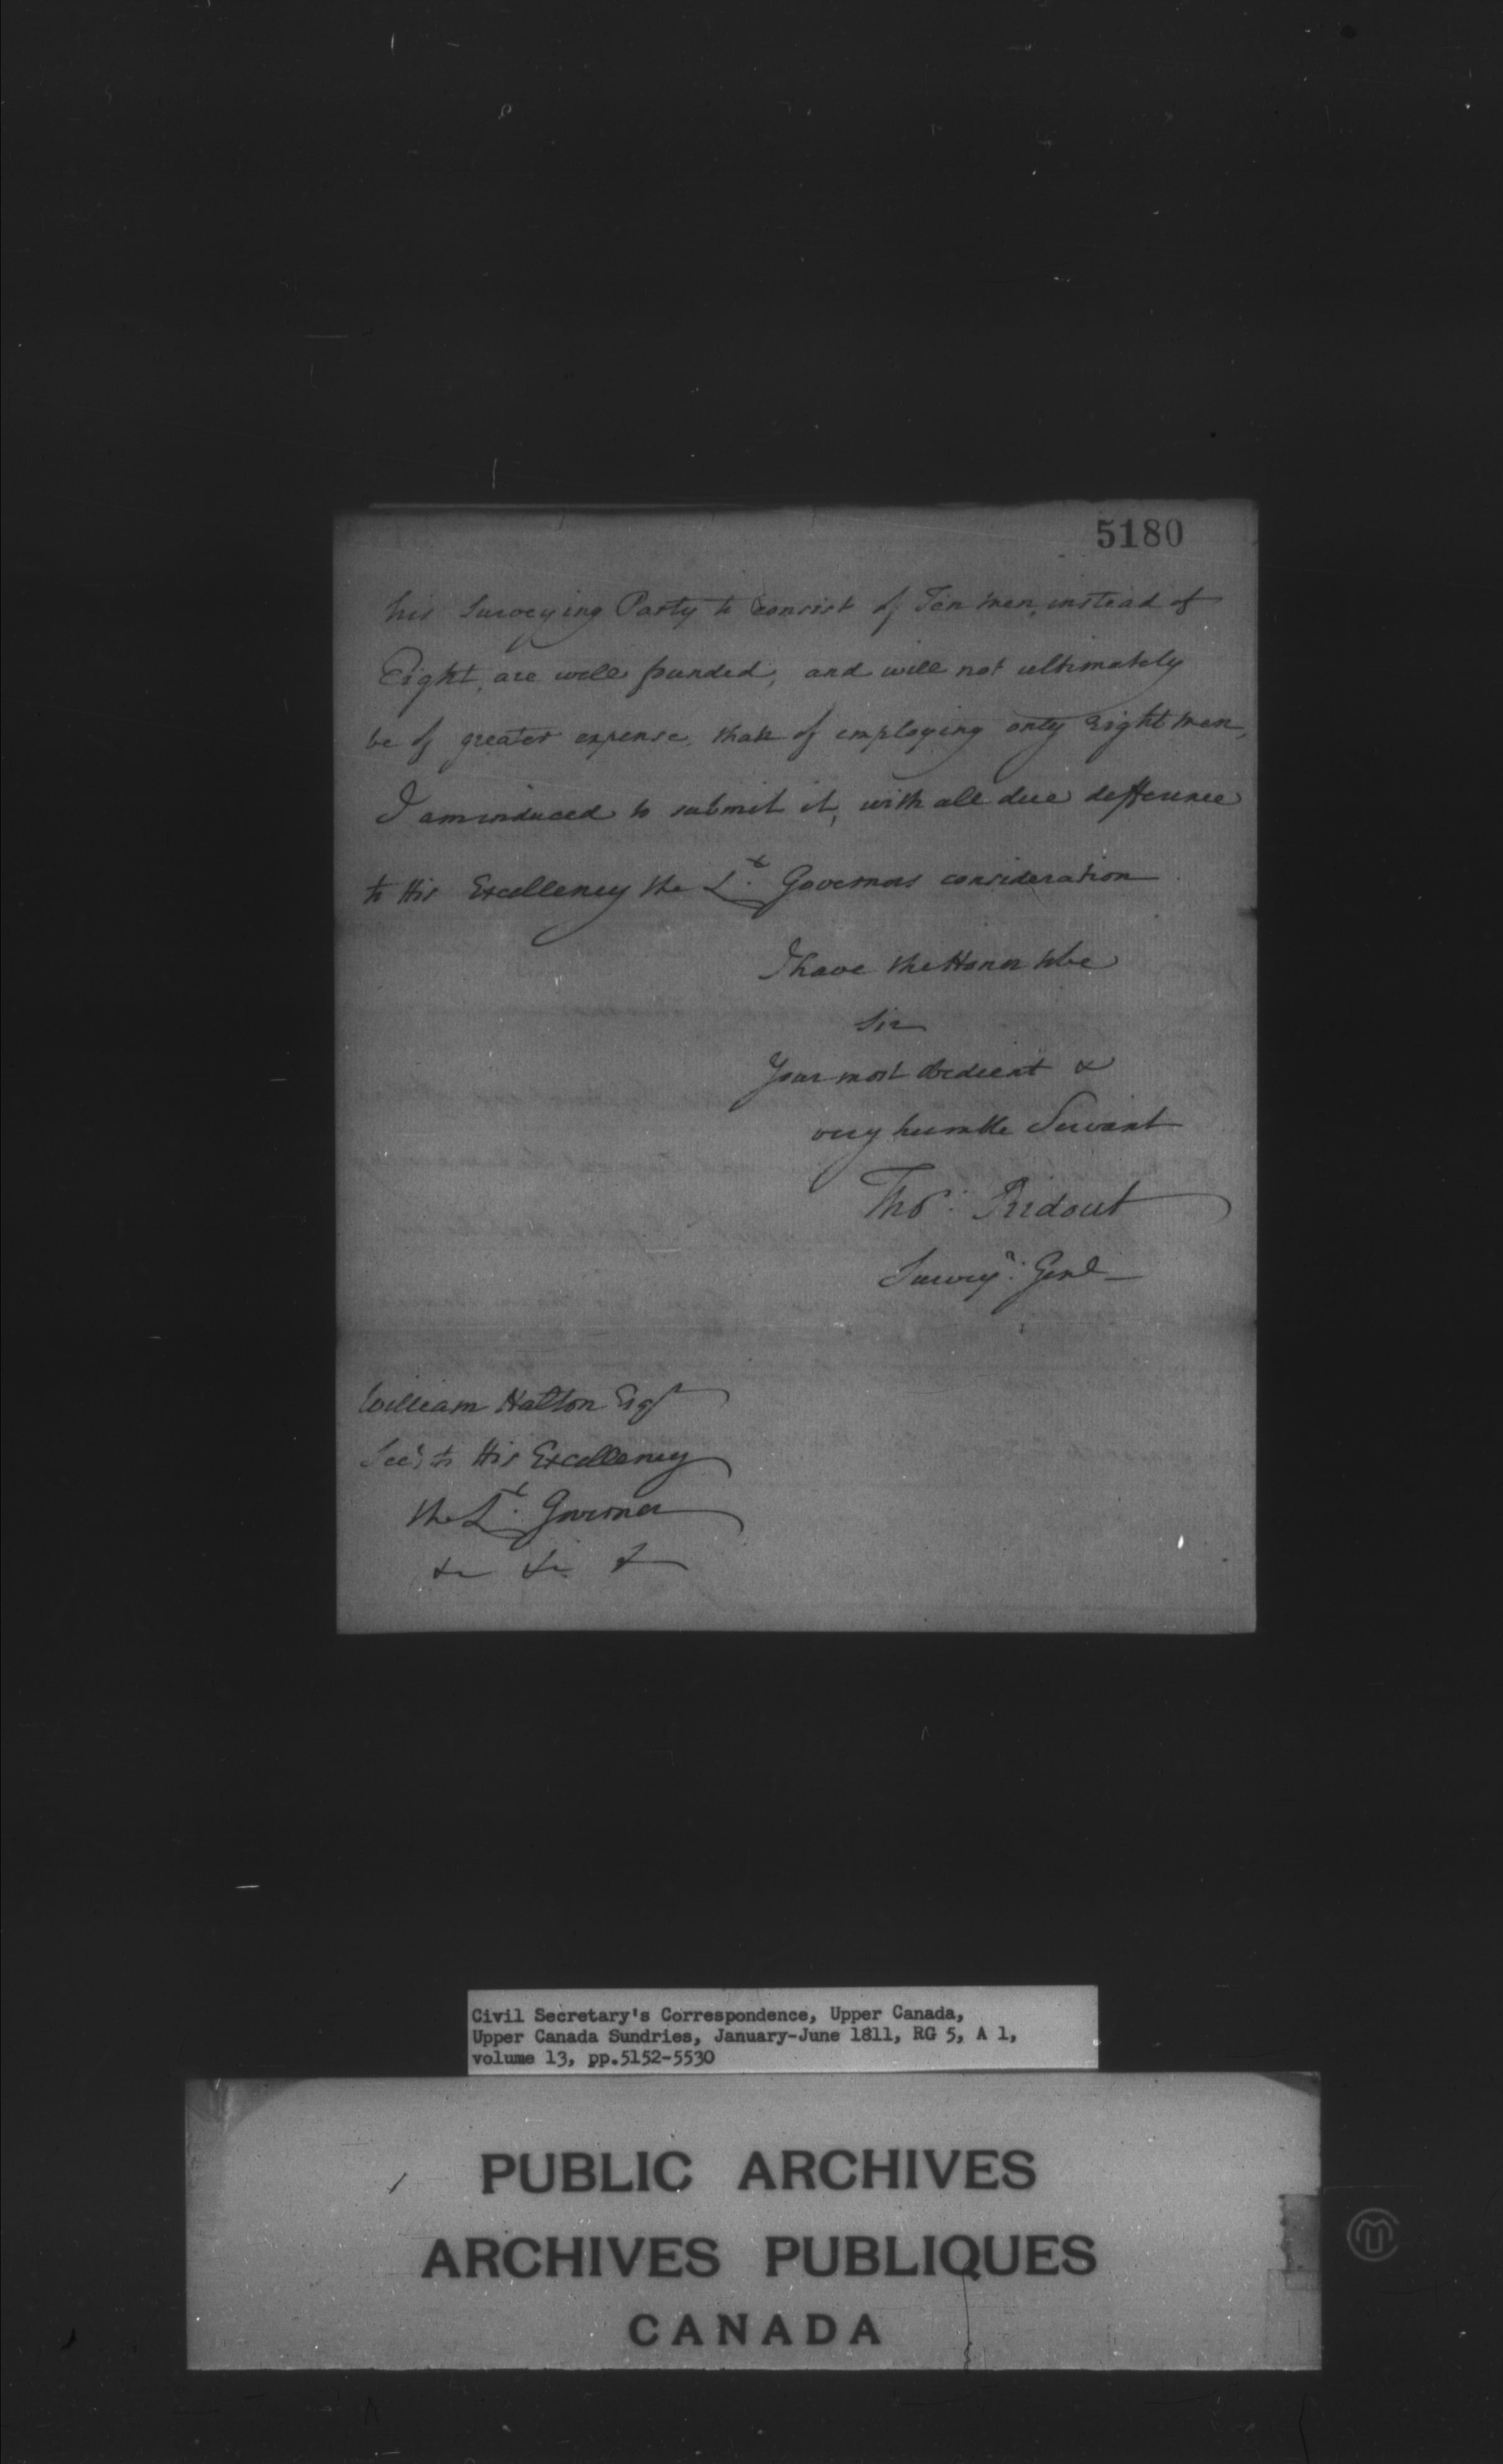 5180
his Surveying Party to consist of Ten men, instead of
Eight, are well founded, and will not ultimately
be of greater expense than of employing only Eight men,
I am induced to submit it, with all due defference
to His Excellency the Lt. Governors consideration
I have the Honor to be
Sir
Your most obedient &
very humble Servant
Thos: Ridout
Surveyr: Genl
William Halton Esqr
Secy to His Excellency
the Lt. Governor
&c &c &
Civil Secretary's Correspondence, Upper Canada,
Upper Canada Sundries, January-June 1811, RG 5, A 1,
volume 13, pp.5152-5530
PUBLIC ARCHIVES
ARCHIVES PUBLIQUES
CANADA